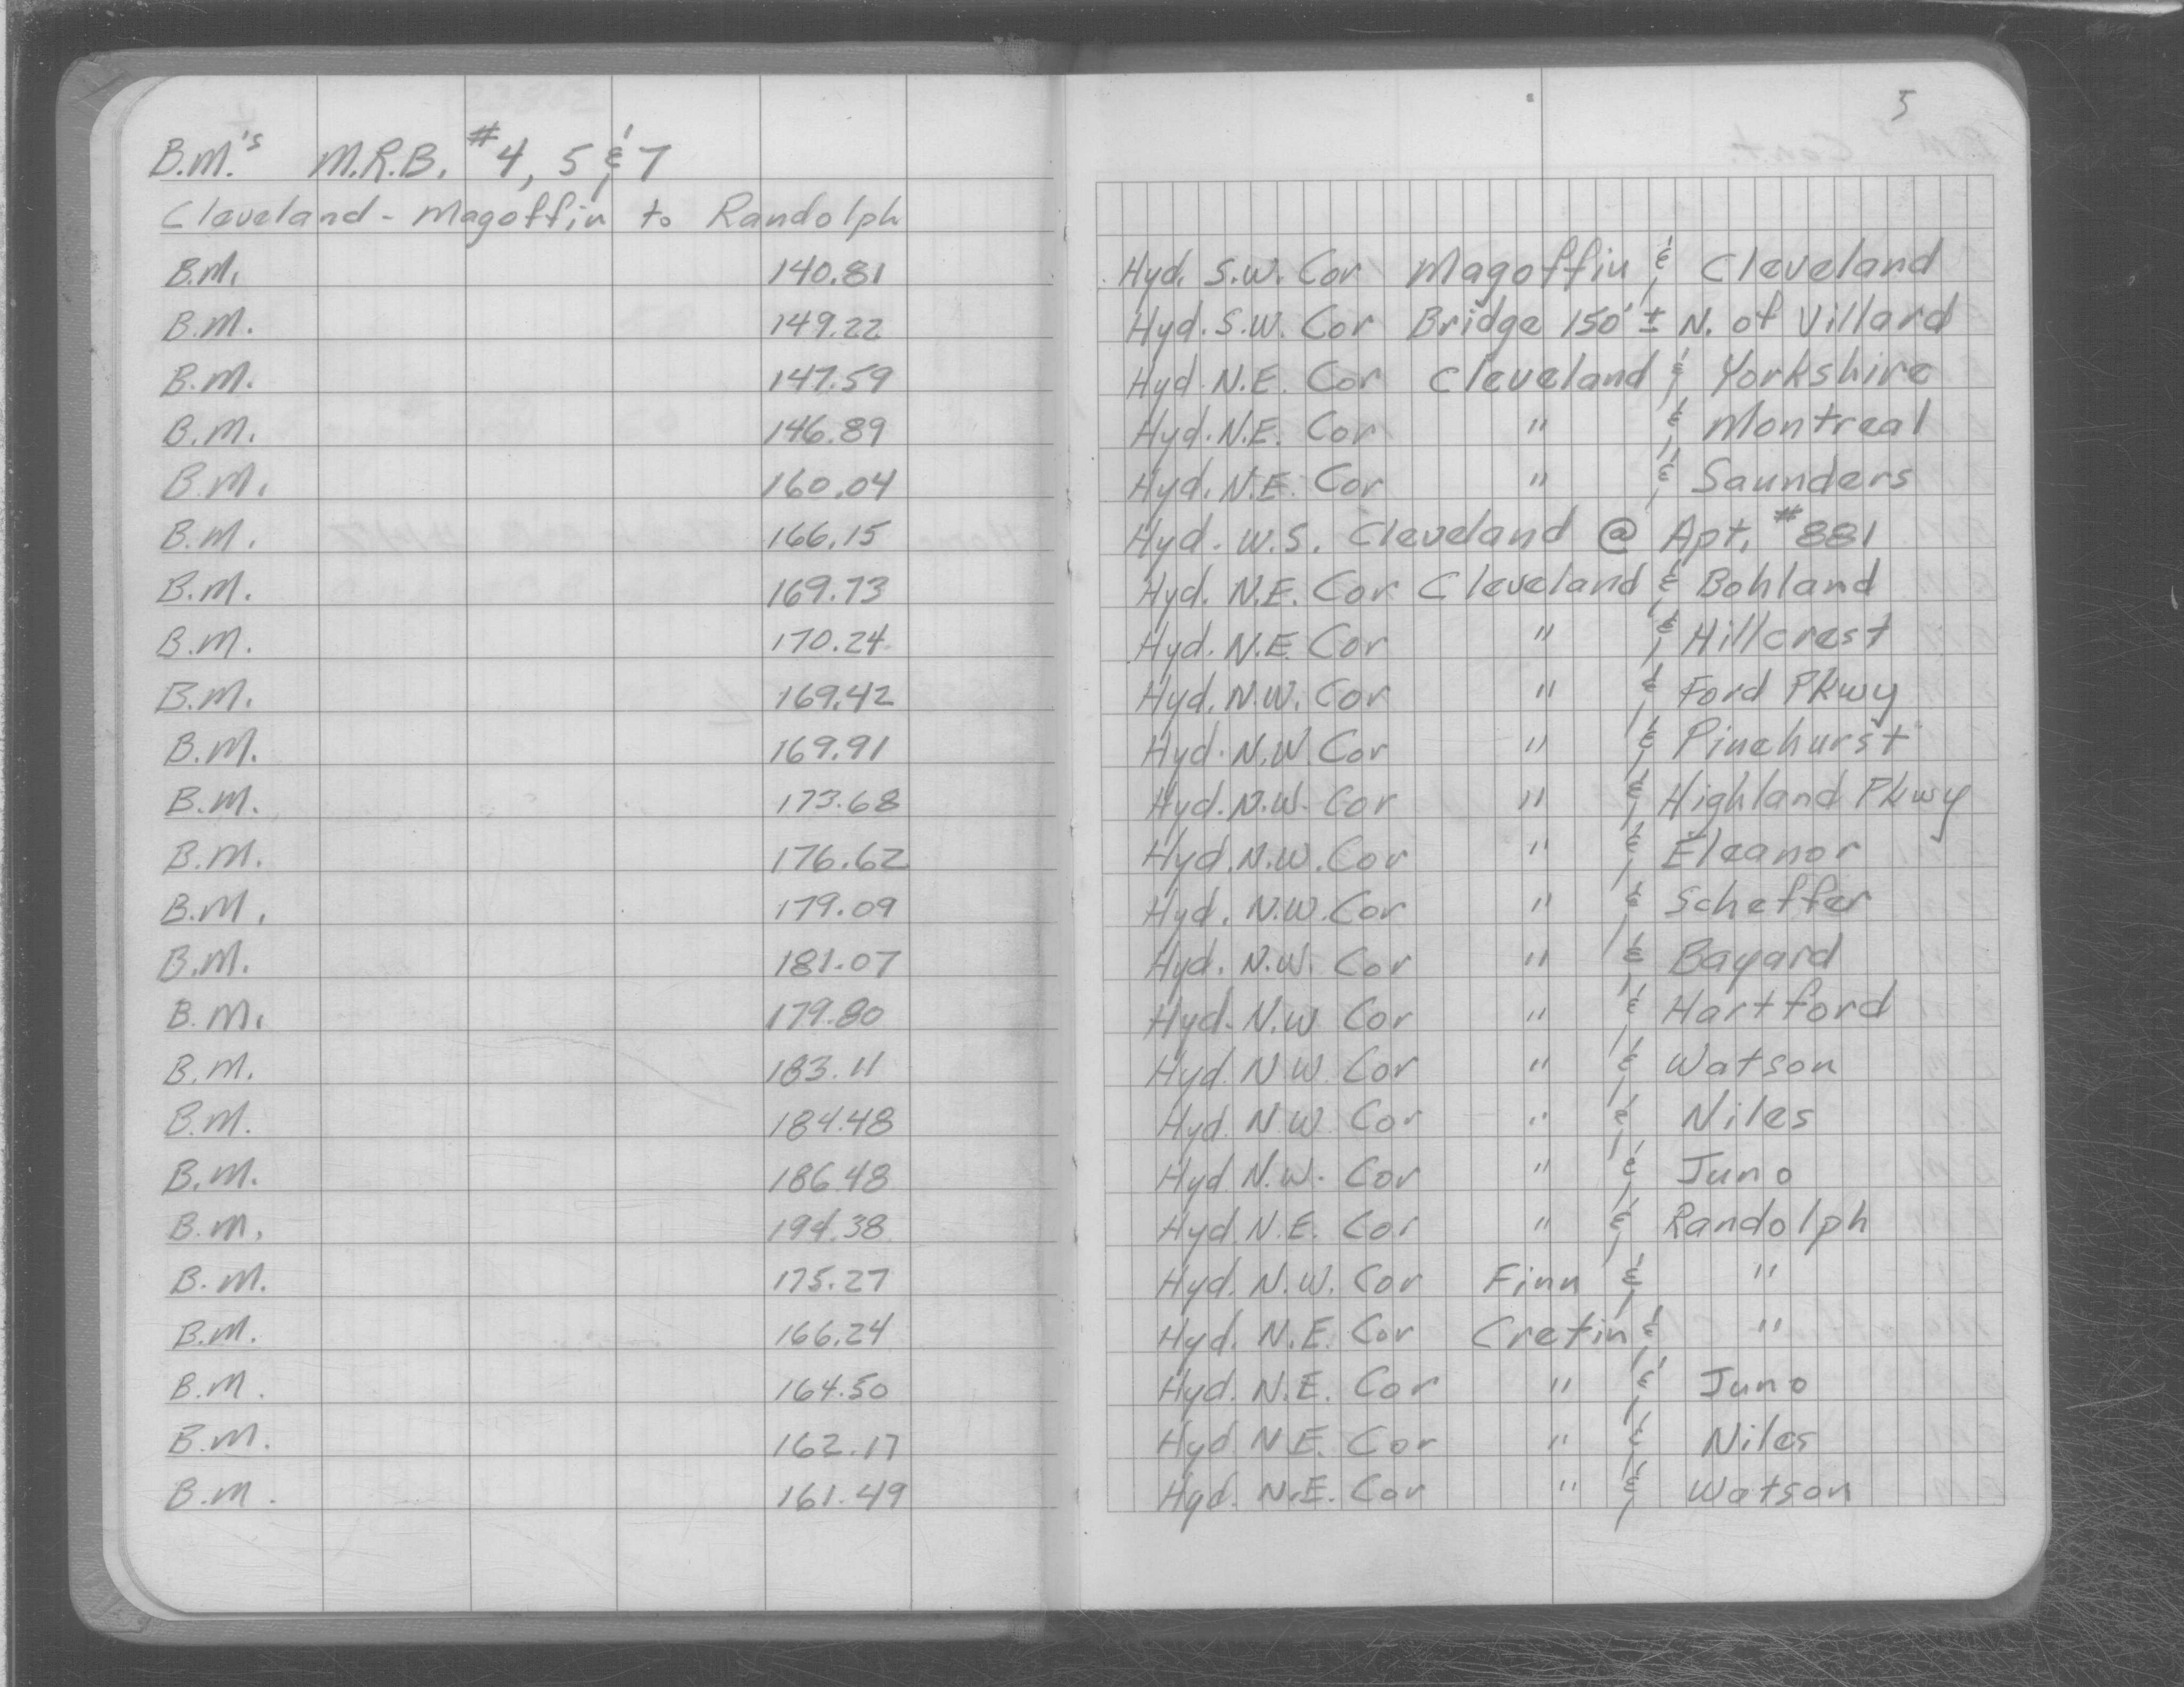 5
B.M.'s M.R.B. #4, 5 & 7
Cleveland - Magoffin to Randolph
B.M. 140.81 Hyd. S.W. Cor Magoffin & Cleveland
B.M. 149.22 Hyd. S.W. Cor Bridge 150' ± N. of Villard
B.M. 147.59 Hyd. N.E. Cor Cleveland & Yorkshire
B.M. 146.89 Hyd. N.E. Cor " & Montreal
B.M. 160.04 Hyd. N.E. Cor " & Saunders
B.M. 166.15 Hyd. W.S. Cleveland @ Apt. #881
B.M. 169.73 Hyd. N.E. Cor Cleveland & Bohland
B.M. 170.24 Hyd. N.E. Cor " & Hillcrest
B.M. 169.42 Hyd. N.W. Cor " & Ford Pkwy
B.M. 169.91 Hyd. N.W. Cor " & Pinehurst
B.M. 173.68 Hyd. N.W. Cor " & Highland Pkwy
B.M. 176.62 Hyd. N.W. Cor " & Eleanor
B.M. 179.09 Hyd. N.W. Cor " & Scheffer
B.M. 181.07 Hyd. N.W. Cor " & Bayard
B.M. 179.80 Hyd. N.W Cor " & Hartford
B.M. 183.11 Hyd. N.W. Cor " & Watson
B.M. 184.48 Hyd. N.W. Cor " & Niles
B.M. 186.48 Hyd. N.W. Cor " & Juno
B.M. 194.38 Hyd. N.E. Cor " & Randolph
B.M. 175.27 Hyd. N.W. Cor Finn & "
B.M. 166.24 Hyd. N.E. Cor Cretin & "
B.M. 164.50 Hyd. N.E. Cor " & Juno
B.M. 162.17 Hyd. N.E. Cor " & Niles
B.M. 161.49 Hyd. N.E. Cor " & Watson